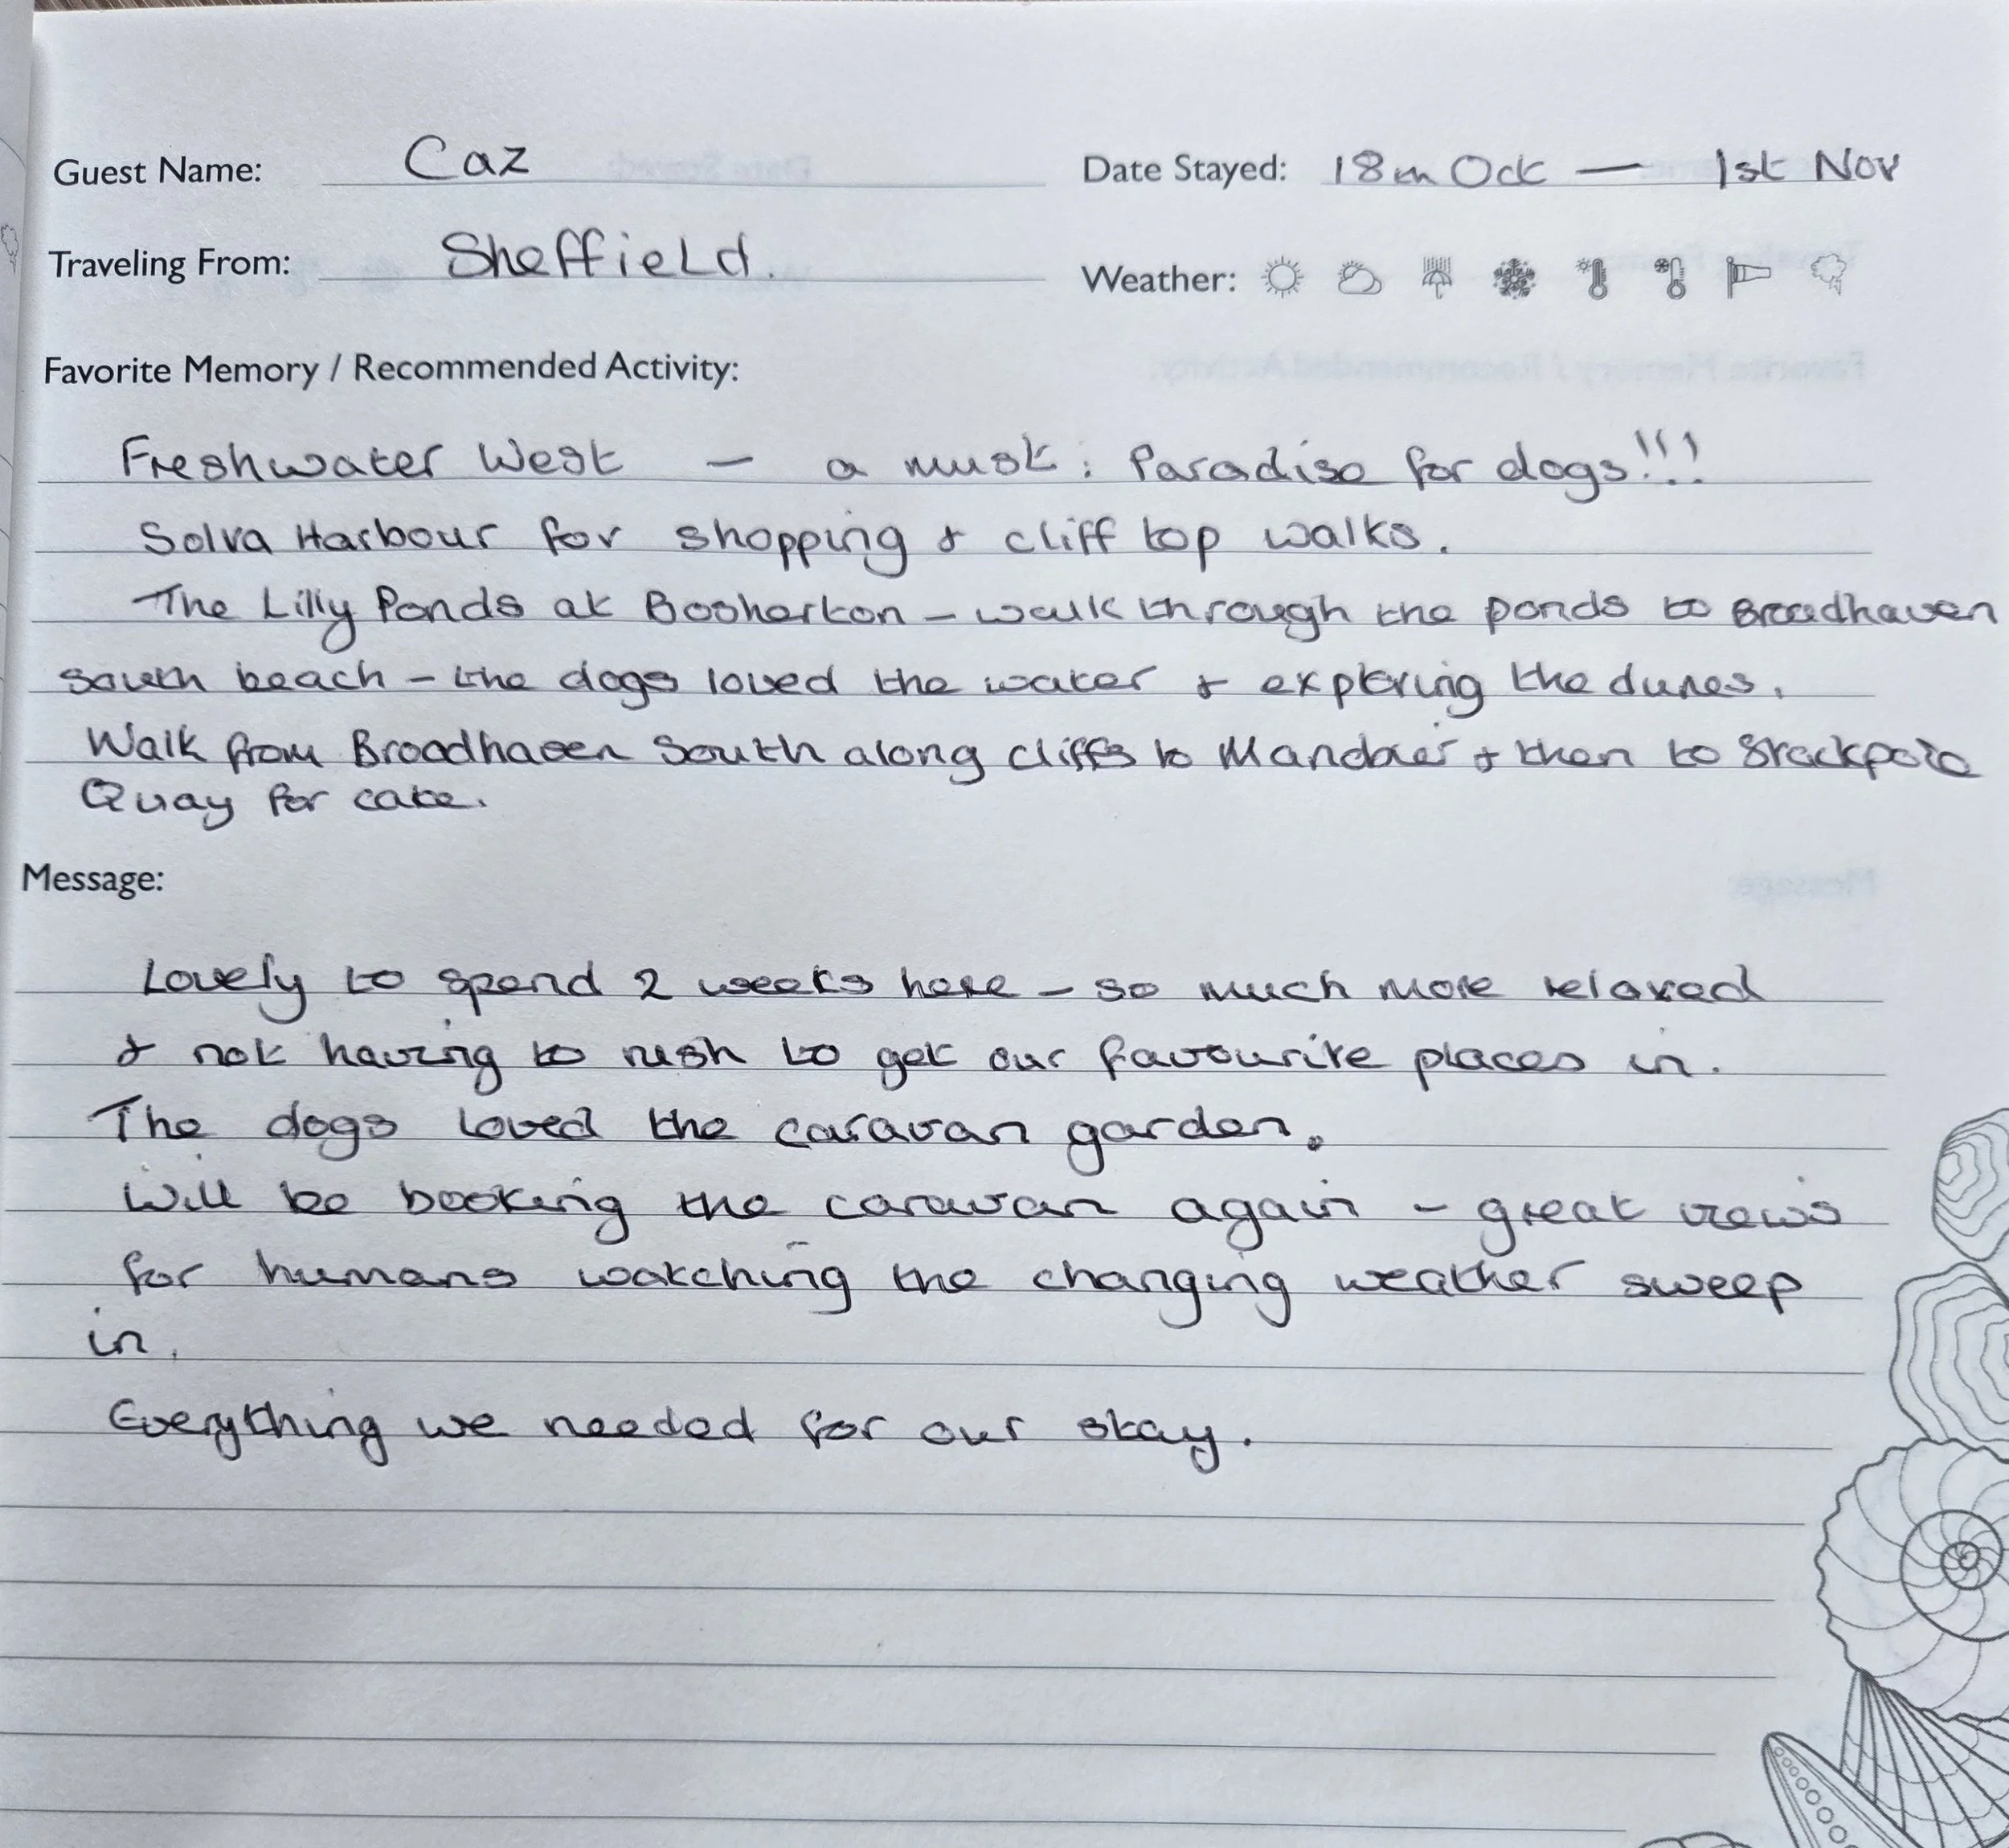 Guest Name: Caz
Date Stayed: 18th Oct — 1st Nov
Traveling From: Sheffield.
Weather:
Favorite Memory / Recommended Activity:
Freshwater West — a must: Paradise for dogs!!!
Solva Harbour for shopping & cliff top walks.
The Lilly Ponds at Bosherton - walk through the ponds to Broadhaven
south beach - the dogs loved the water & exploring the dunes.
Walk from Broadhaven South along cliffs to & then to Stackpole
Quay for cake.
Message:
Lovely to spend 2 weeks here - so much more relaxed
& not having to rush to get our favourite places in.
The dogs loved the caravan garden.
Will be booking the caravan again - great views
for humans watching the changing weather sweep
in.
Everything we needed for our stay.